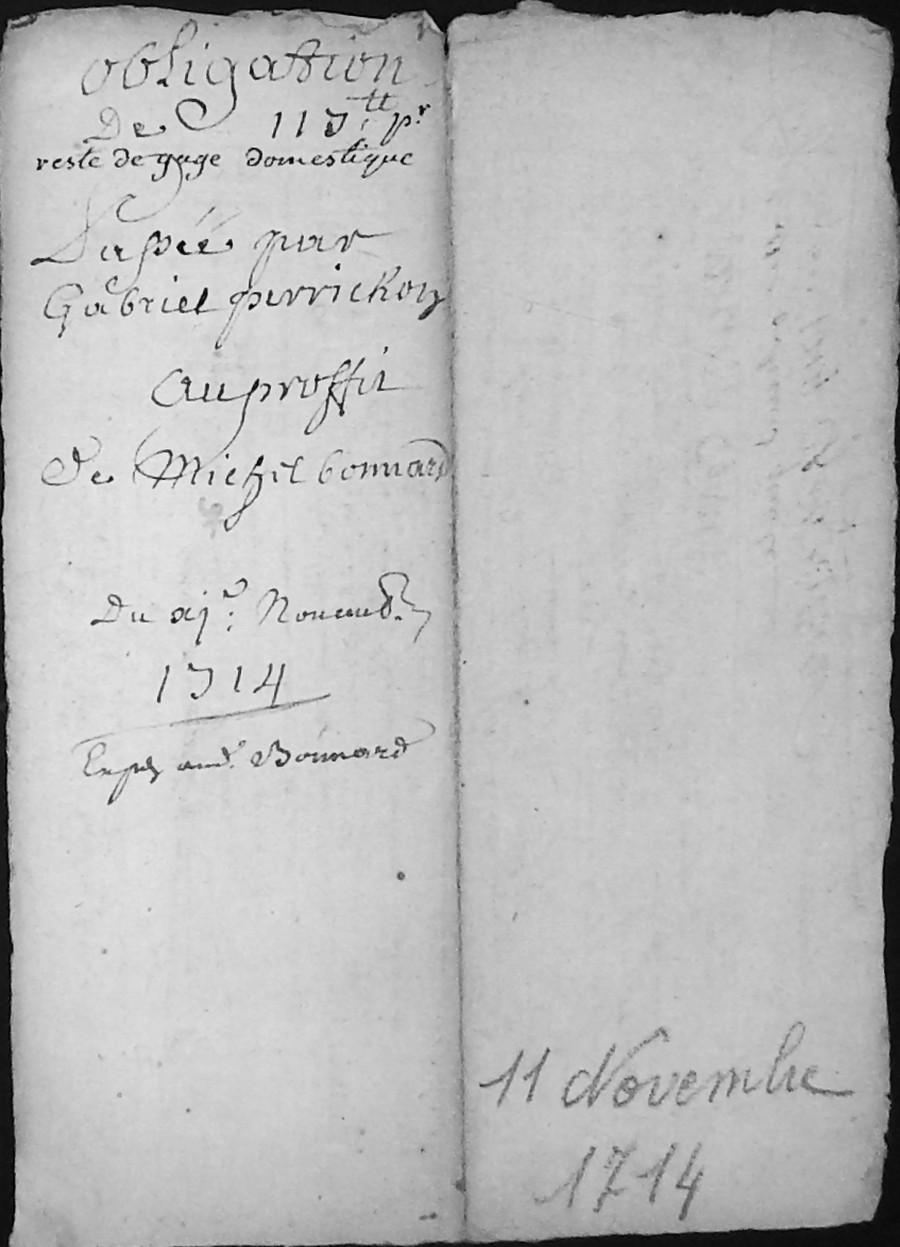 obligation
De 117tt pr
reste de gage domestique
passée par
Gabriel perrichon
au proffit
de Michel bonnard
Du xje. Novemb.
1714
Exped. and. Bonnard
11 Novembre
1714